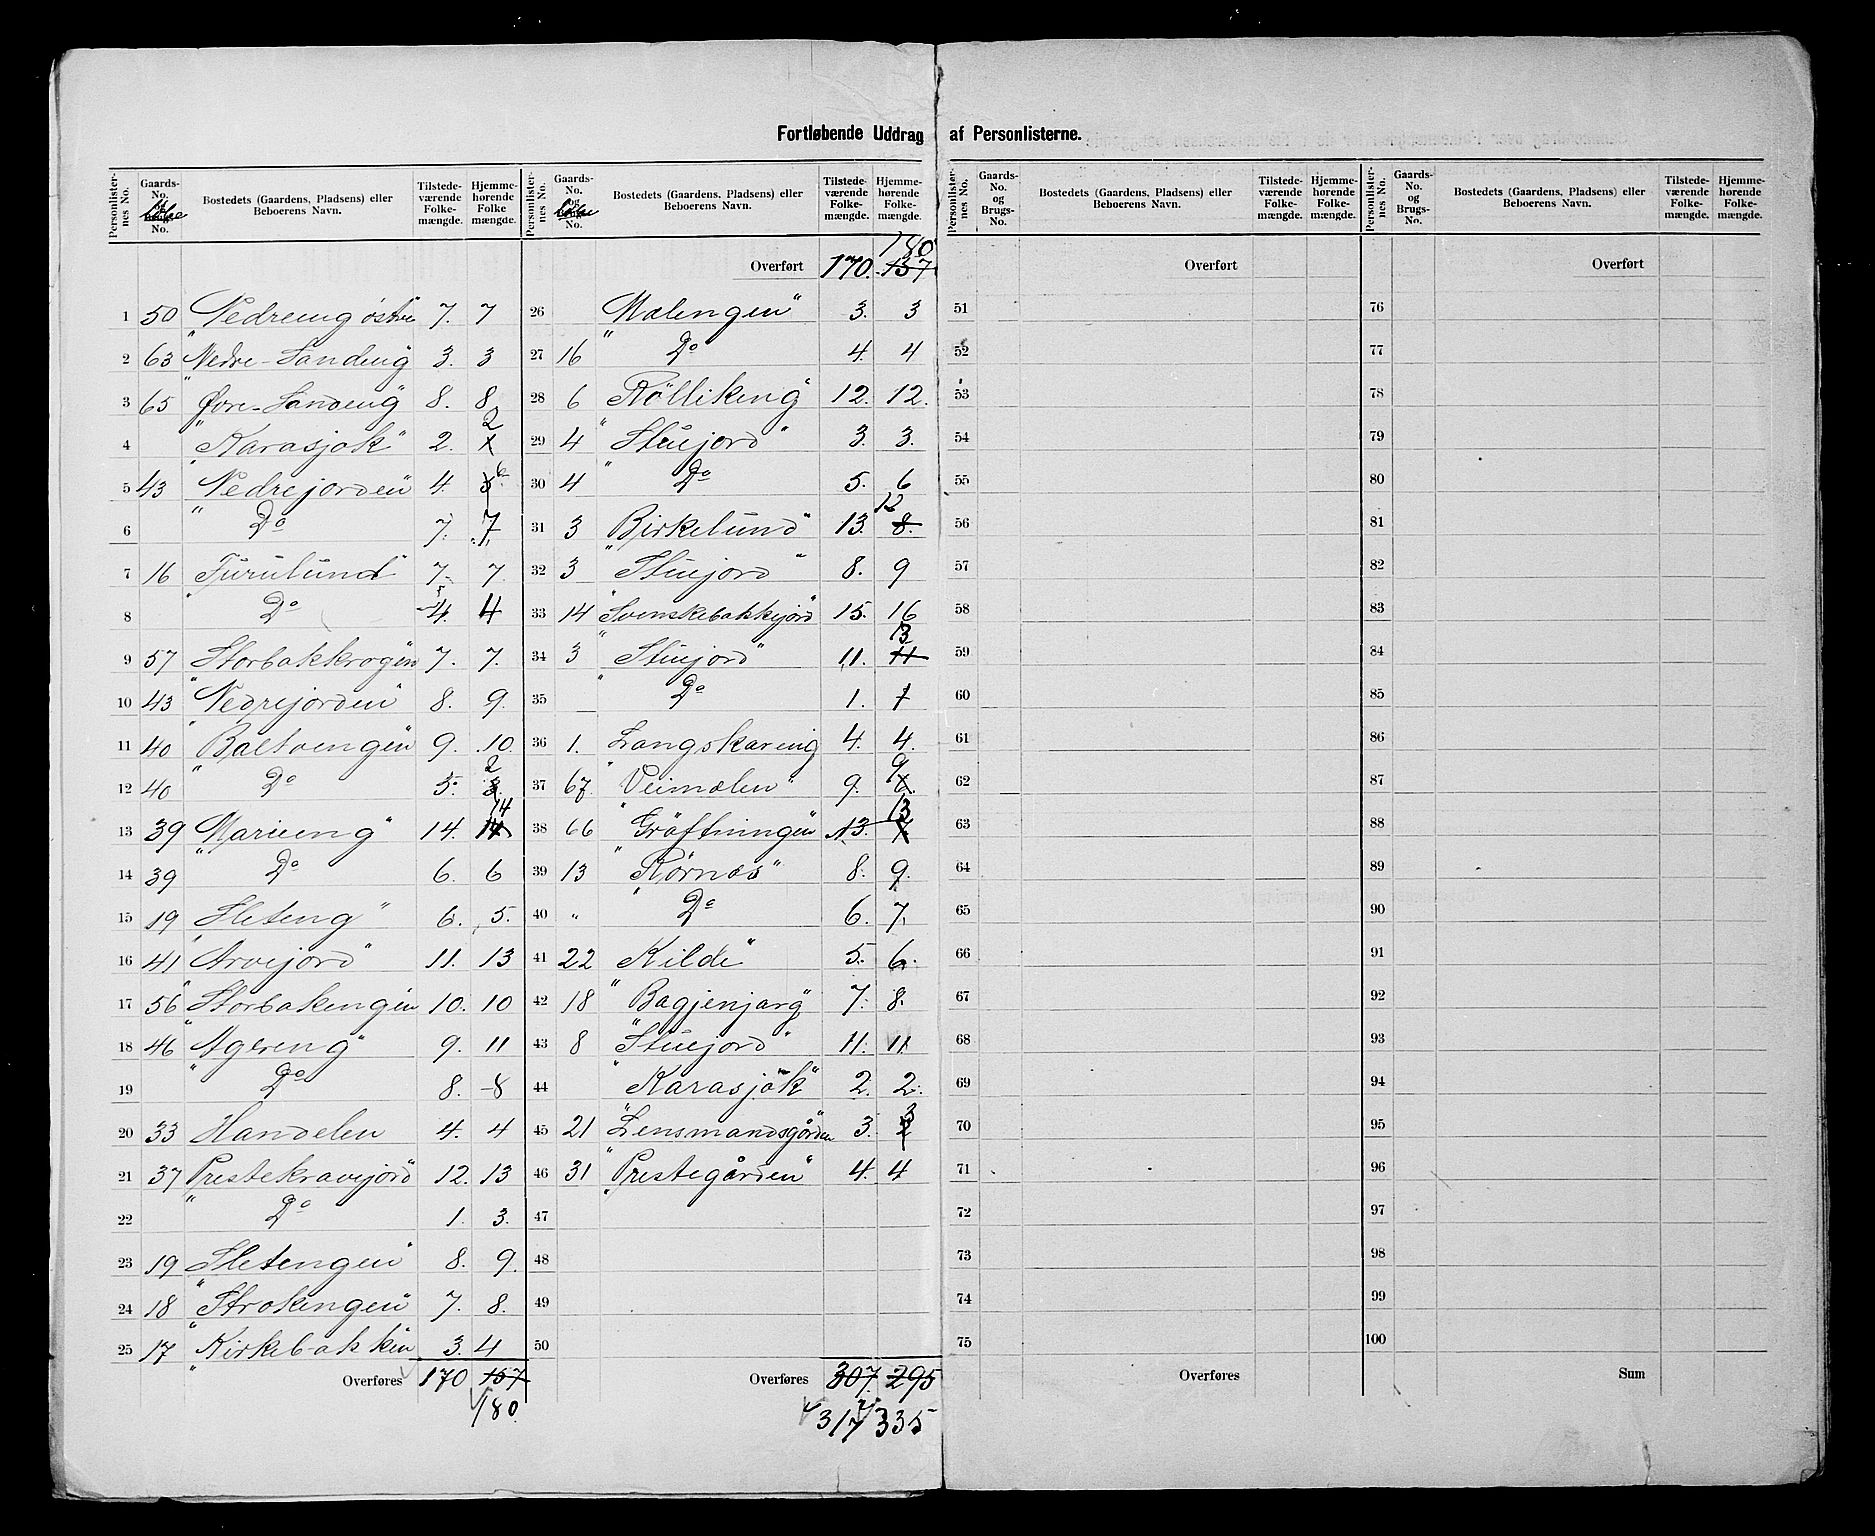 Fortløbende Uddrag af Personlisterne.
Personlister-nes No. | Gaards-No. No. | Bostedets (Gaardens, Pladsens) eller Beboerens Navn. | Tilstede-værende Folke-mængde. | Hjemme-hørende Folke mængde.
1 50 Nedreeng østre 7. 7
2 63 "Nedre-Sandeng 3. 3
3 65 "Øvre-Sandeng" 8. 8
4 "Karasjok" 2. 2
5 43 "Nedrejorden" 4. 6
6 " Do 7. 7.
7 16 Furulund" 7. 7.
8 " Do 4. 4
9 57 Storbakkrogen 7. 7.
10 43 "Nedrejorden" 8. 9.
11 40 "Baltoengen 9. 10.
12 40 " Do 5. 2
13 39 "Marieeng" 14. 14
14 39 " Do 6. 6
15 19 Sleteng" 6. 5.
16 41 "Arvejord" 11. 13
17 56 "Storbakengen 10. 10
18 46 "Agereng" 9. 11
19 " Do 8. 8
20 33 Handelen 4. 4
21 37 Prestekravejord" 12. 13
22 " Do 1. 3.
23 19 Sletengen" 8. 9.
24 18 "Strokengen" 7. 8.
25 17 "Kirkebakken 3. 4
Overføres 170 157
180
Personlister-nes No. | Gaards-No. No. | Bostedets (Gaardens, Pladsens) eller Beboerens Navn. | Tilstede-værende Folke-mængde. | Hjemme-hørende Folke-mængde.
180
Overført 170. 157
26 Mælengen" 3. 3
27 16 " Do 4. 4
28 6 Røllikeng" 12. 12.
29 4 "Stuejord" 3. 3.
30 4 " Do 5. 6
31 3 Birkelund" 13. 12 8.
32 3 "Stuejord" 8. 9
33 14 "Svenskebakkejord" 15. 16
34 3 "Stuejord" 11. 13 11
35 " Do 1. 1
36 1. Langskareng 4. 4.
37 67. "Veimælen" 9. 9
38 66 "Gröftningen 13. 13 7
39 13 "Rørnæs" 8. 9.
40 " " Do 6. 7.
41 22 Kilde" 5. 6.
42 18 "Bagjenjarg" 7. 8.
43 8 "Stuejord" 11. 11
44 "Karasjok" 2. 2.
45 21 "Lensmandsgården 3. 3 2
46 31 "Prestegården" 4. 4
47
48
49
50
Overføres 307. 295
317 335
Personlister-nes No. | Gaards-No. og Brugs-No. | Bostedets (Gaardens, Pladsens) eller Beboerens Navn. | Tilstede-værende Folke-mængde. | Hjemme-hørende Folke-mængde.
Overført
51
52
53
54
55
56
57
58
59
60
61
62
63
64
65
66
67
68
69
70
71
72
73
74
75
Overføres
Personlister-nes No. | Gaards-No. og Brugs-No. | Bostedets (Gaardens, Pladsens) eller Beboerens Navn. | Tilstede-værende Folke-mængde. | Hjemme-hørende Folke-mængde.
Overført
76
77
78
79
80
81
82
83
84
85
86
87
88
89
90
91
92
93
94
95
96
97
98
99
100
Sum